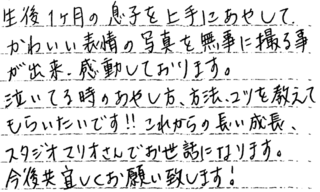 生後1ヶ月の息子を上手にあやして
かわいい表情の写真を無事に撮る事
が出来、感動しております。
泣いてる時のあやし方、方法、コツを教えて
もらいたいです!!これからの長い成長、
スタジオマリオさんでお世話になります。
今後共宜しくお願い致します!